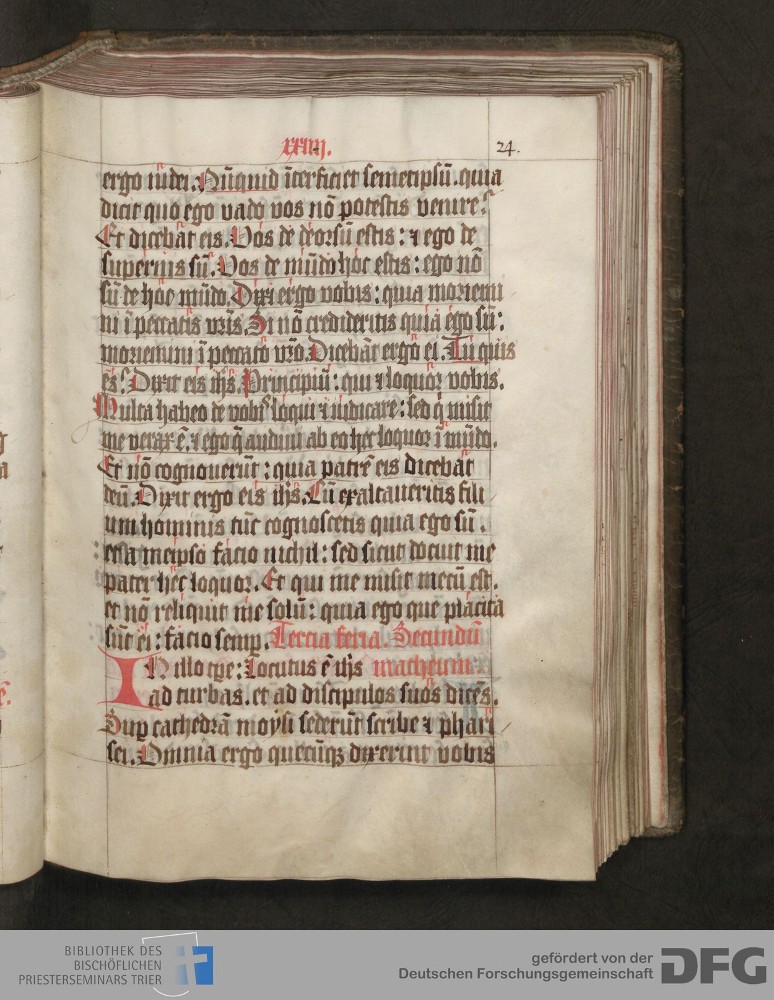 xxiiij.
24.
ergo iudei. Nūquid īterficiet semetipsū. quia
dicit quo ego vado vos nō potestis venire?
Et dicebāt eis. Vos de deorsū estis: ⁊ ego de
supernis sū. Vos de mūdo hoc estis: ego nō
sū de hoc mūdo. Dixi ergo vobis: quia moriemi
ni ī peccatis vr̄is. Si nō credideritis quia ego sū:
moriemini ī peccato vr̄o. Dicebāt ergo ei. Tu quis
es? Dixit eis ih̄s. Principiū: qui ⁊ loquor vobis.
Multa habeo de vobis loqui ⁊ iudicare: sed q̄ misit
me verax ē. ⁊ ego q̄ audiui ab eo hec loquor ī mūdo.
Et nō cognouerūt: quia patrē eis dicebāt
deū. Dixit ergo eis ih̄s. Cū exaltaueritis fili
um hominis tūc cognoscetis quia ego sū.
et a meipso facio nichil: sed sicut docuit me
pater hec loquor. Et qui me misit mecū est.
et nō reliquit me solū: quia ego que placita
sūt ei: facio semp. Tercia feria. Secundū
IN illo tp̄e: Locutus ē ih̄s matheum.
ad turbas. et ad discipulos suos dicēs.
Sup cathedrā moysi sederūt scribe ⁊ phari
sei. Omnia ergo quecūq; dixerint vobis
BIBLIOTHEK DES
BISCHÖFLICHEN
PRIESTERSEMINARS TRIER
gefördert von der
Deutschen Forschungsgemeinschaft
DFG